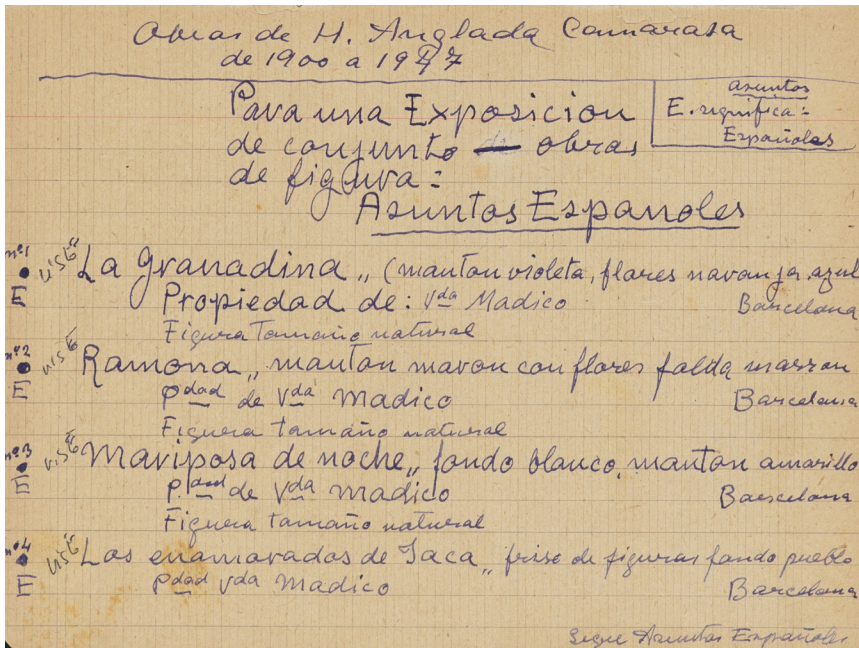 Obras de H. Anglada Camarasa
de 1900 a 1947
asuntos
E. significa:
Españoles
Para una Exposicion
de conjunto de obras
de figura:
Asuntos Espanoles
nº1 Visé La Granadina „ (manton violeta, flores navanja azul
E Propiedad de: Vda Madico Barcelona
Figura Tamaño natural
nº2 Visé Ramona „ manton maron con flores falda marron
E Pdad de Vda Madico Barcelona
Figura tamaño natural
nº3 Visé Mariposa de noche „ fondo blanco, manton amarillo
E P.dad de Vda Madico Barcelona
Figura tamaño natural
nº4 Visé Los enamorados de Jaca „ friso de figuras fondo pueblo
E Pdad Vda Madico Barcelona
Segue Asuntos Españoles